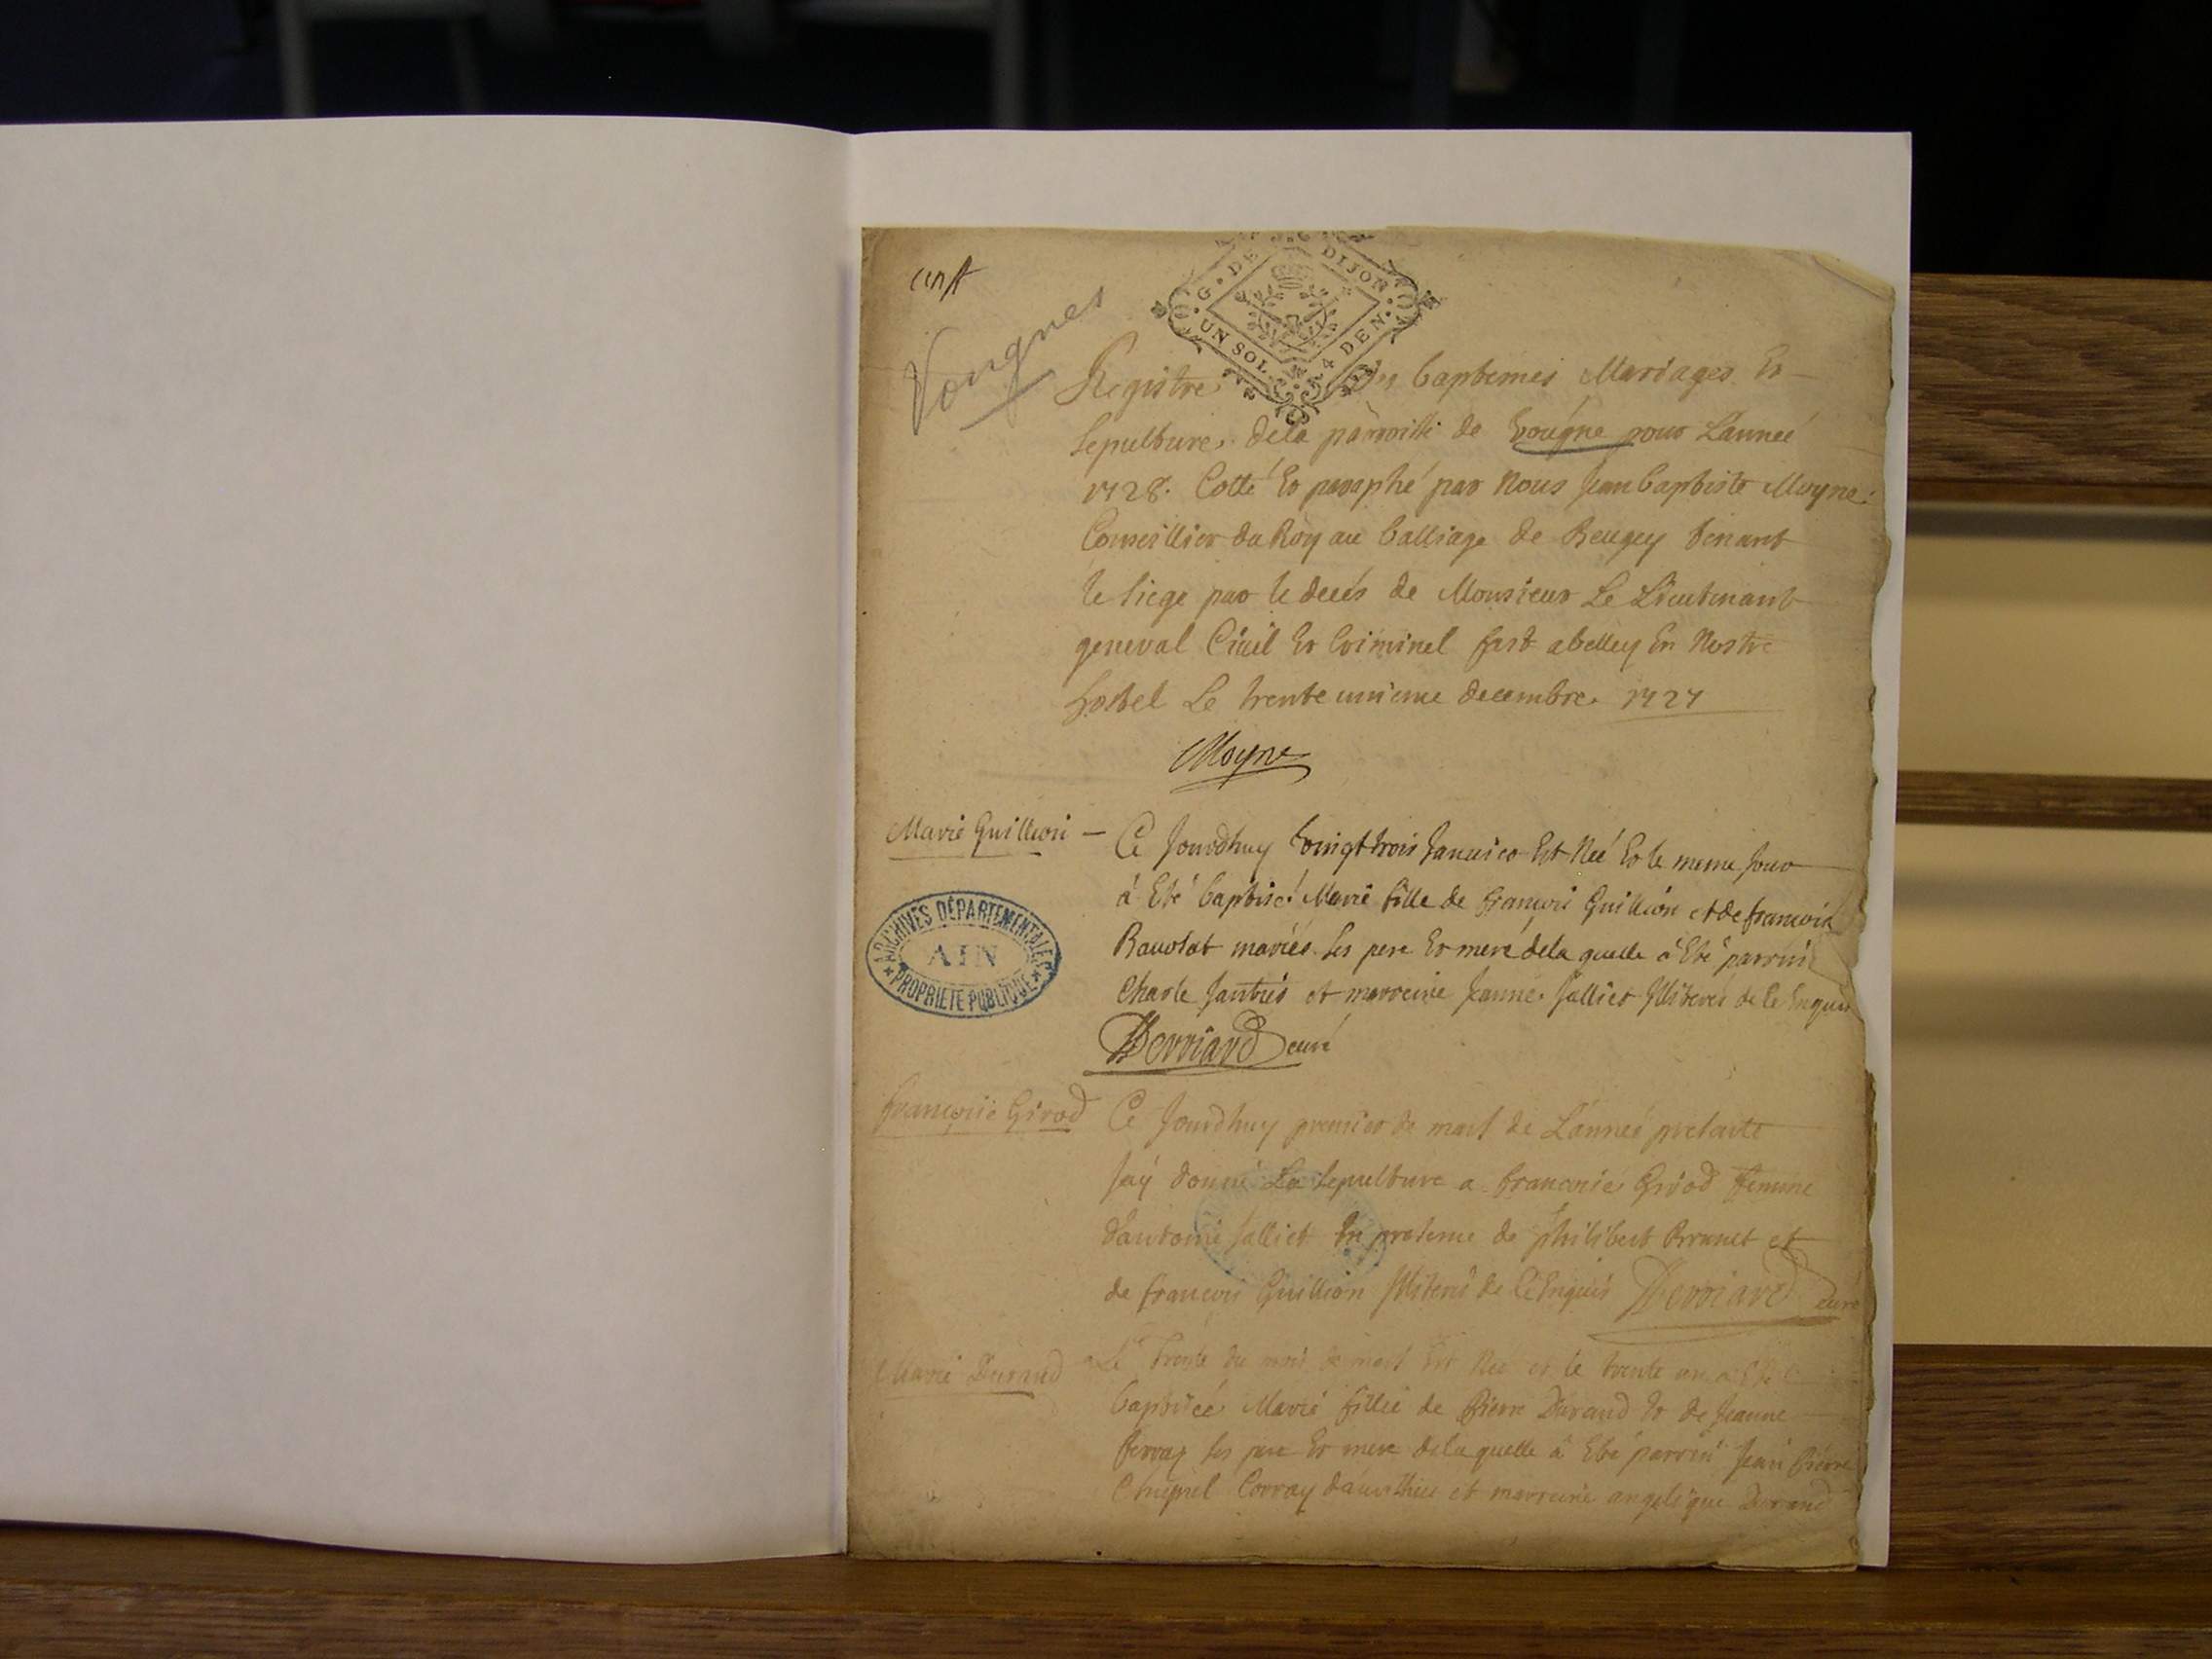 Vongnes
G. DE DIJON
UN SOL. 4 DEN.
Registre des baptemes Mariages Et
sepulture, dela parroisse de Vougne pour Lanneé
1728. Cotté Et paraphé par Nous Jean baptiste Moyne
Conseillier du Roy au balliage de Beugey tenant
le siege par le decés de Monsieur Le Lieutenant
general Ciuil Et Criminel fait abelley En Nostre
hostel Le trente unieme decembre 1727
Moyne
Marie Guillion
Ce Jourdhuy vingt trois Januier Est Neé Et le meme Jour
á Eté baptiseé Marie fille de francois Guillion et de francoise
mariés ses pere Et mere dela quelle á Eté parrin
Charle Jantis et marreine Jeanne Jallier Illiterés de ce Enquis
Derriard curé
ARCHIVES DÉPARTEMENTALES
AIN
PROPRIÉTÉ PUBLIQUE
francoise Girod
Ce Jourdhuy premier de mars de Lanneé
Jaÿ donné La sepulture a francoise Girod femme
dantoine Jallier En presence de philibert Brunet et
de francois Guillion Illiterés de ce Enquis Derriard curé
Marie Durand
Le trente du mois de mars Est Neé et le trente un a Eté
baptiseé Marie fillie de Pierre Durand Et de Jeanne
ferray ses pere Et mere dela quelle â Eté parrin Jean Pierre
Corray et marreine angelique Durand